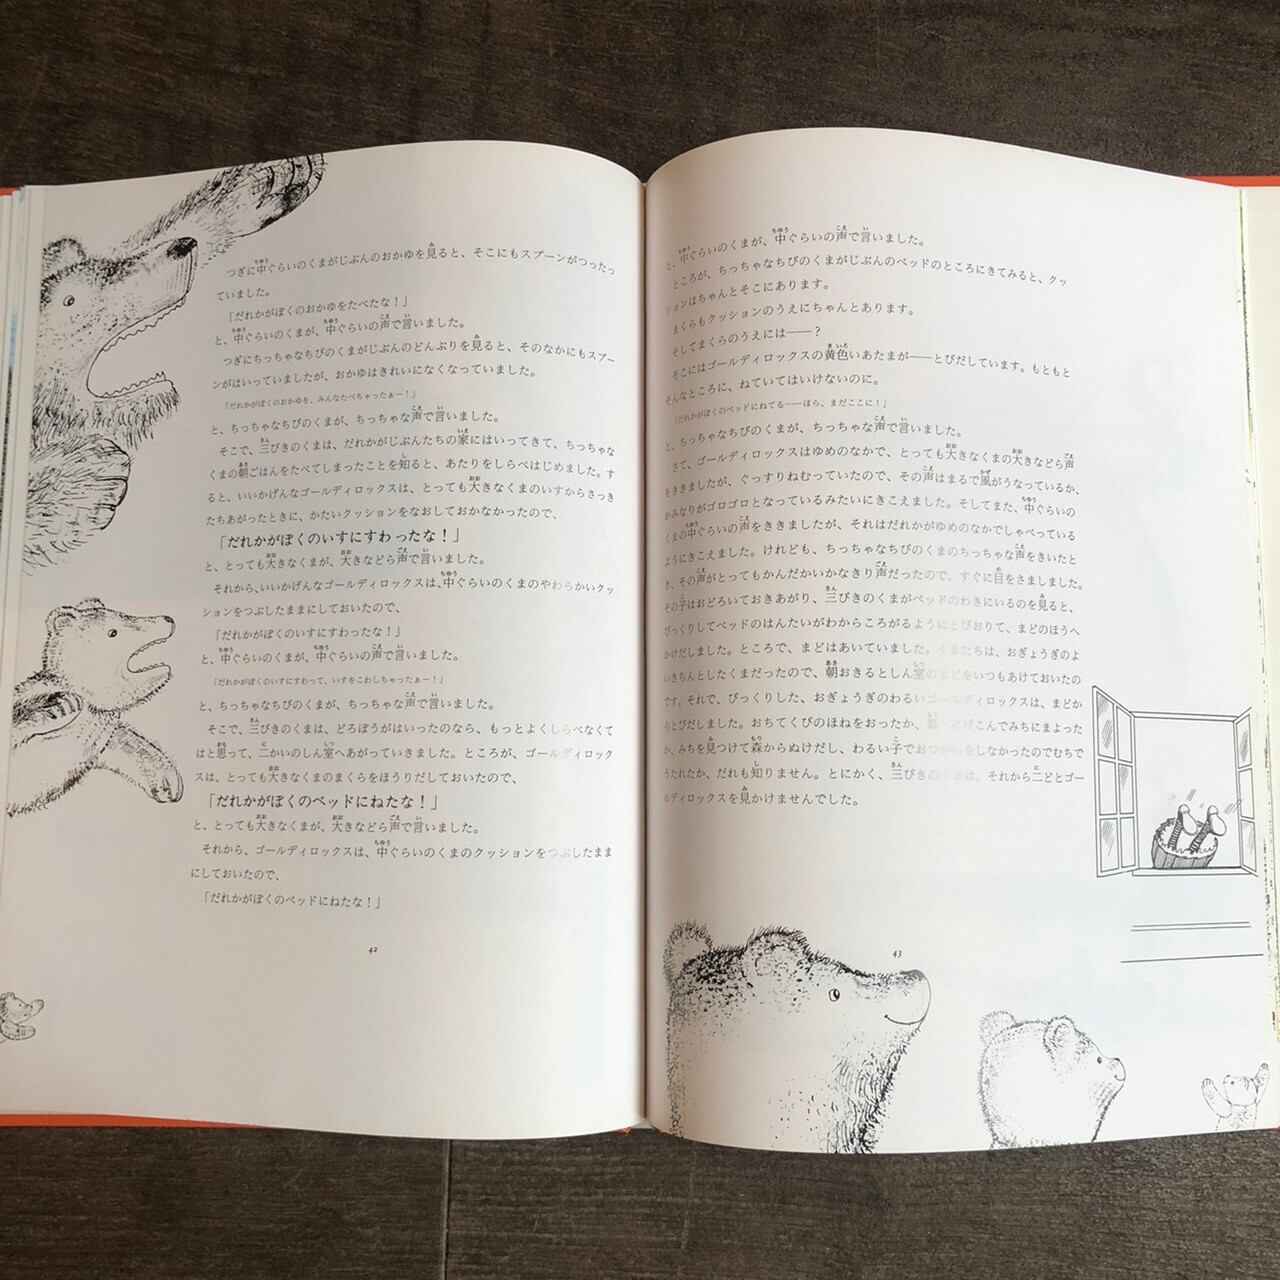 つぎに中ぐらいのくまがじぶんのおかゆを見ると、そこにもスプーンがつったっ
ていました。
「だれかがぼくのおかゆをたべたな！」
と、中ぐらいのくまが、中ぐらいの声で言いました。
つぎにちっちゃなちびのくまがじぶんのどんぶりを見ると、そのなかにもスプー
ンがはいっていましたが、おかゆはきれいになくなっていました。
「だれかがぼくのおかゆを、みんなたべちゃったぁー！」
と、ちっちゃなちびのくまが、ちっちゃな声で言いました。
そこで、三びきのくまは、だれかがじぶんたちの家にはいってきて、ちっちゃな
くまの朝ごはんをたべてしまったことを知ると、あたりをしらべはじめました。す
ると、いいかげんなゴールディロックスは、とっても大きなくまのいすからさっき
たちあがったときに、かたいクッションをなおしておかなかったので、
「だれかがぼくのいすにすわったな！」
と、とっても大きなくまが、大きなどら声で言いました。
それから、いいかげんなゴールディロックスは、中ぐらいのくまのやわらかいクッ
ションをつぶしたままにしておいたので、
「だれかがぼくのいすにすわったな！」
と、中ぐらいのくまが、中ぐらいの声で言いました。
「だれかがぼくのいすにすわって、いすをこわしちゃったぁー！」
と、ちっちゃなちびのくまが、ちっちゃな声で言いました。
そこで、三びきのくまは、どろぼうがはいったのなら、もっとよくしらべなくて
はと思って、二かいのしん室へあがっていきました。ところが、ゴールディロック
スは、とっても大きなくまのまくらをほうりだしておいたので、
「だれかがぼくのベッドにねたな！」
と、とっても大きなくまが、大きなどら声で言いました。
それから、ゴールディロックスは、中ぐらいのくまのクッションをつぶしたまま
にしておいたので、
「だれかがぼくのベッドにねたな！」
42
と、中ぐらいのくまが、中ぐらいの声で言いました。
ところが、ちっちゃなちびのくまがじぶんのベッドのところにきてみると、クッ
ションはちゃんとそこにあります。
まくらもクッションのうえにちゃんとあります。
そしてまくらのうえには――？
そこにはゴールディロックスの黄色いあたまが――とびだしています。もともと
そんなところに、ねていてはいけないのに。
「だれかがぼくのベッドにねてる――ほら、まだここに！」
と、ちっちゃなちびのくまが、ちっちゃな声で言いました。
さて、ゴールディロックスはゆめのなかで、とっても大きなくまの大きなどら声
をききましたが、ぐっすりねむっていたので、その声はまるで風がうなっているか、
かみなりがゴロゴロとなっているみたいにきこえました。そしてまた、中ぐらいの
くまの中ぐらいの声をききましたが、それはだれかがゆめのなかでしゃべっている
ようにきこえました。けれども、ちっちゃなちびのくまのちっちゃな声をきいたと
き、その声がとってもかんだかいかなきり声だったので、すぐに目をさましました。
その子はおどろいておきあがり、三びきのくまがベッドのわきにいるのを見ると、
びっくりしてベッドのはんたいがわからころがるようにとびおりて、まどのほうへ
かけだしました。ところで、まどはあいていました。くまたちは、おぎょうぎのよ
いきちんとしたくまだったので、朝おきるとしん室のまどをいつもあけておいたの
です。それで、びっくりした、おぎょうぎのわるいゴールディロックスは、まどか
らとびだしました。おちてくびのほねをおったか、森へにげこんでみちにまよった
か、みちを見つけて森からぬけだし、わるい子でおつかいをしなかったのでむちで
うたれたか、だれも知りません。とにかく、三びきのくまは、それから二どとゴー
ルディロックスを見かけませんでした。
43